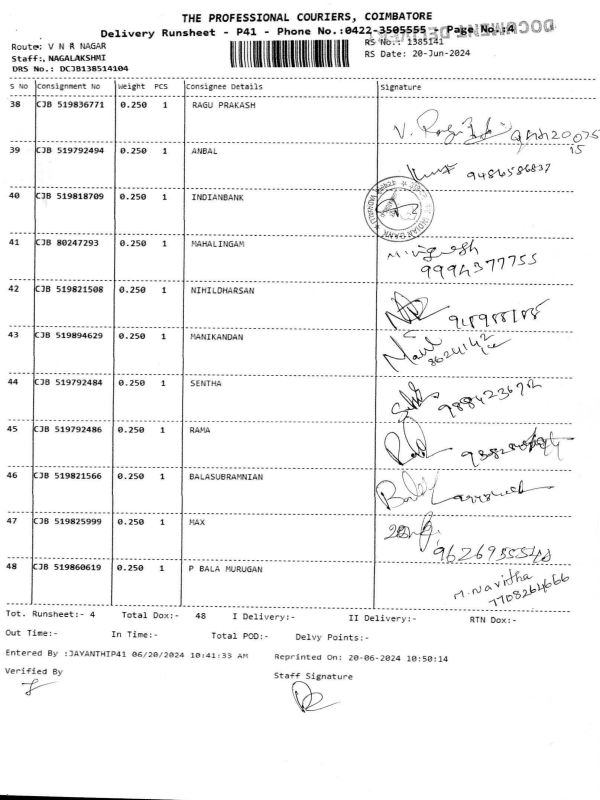 THE PROFESSIONAL COURIERS, COIMBATORE
Delivery Runsheet - P41 - Phone No.:0422-3505555 - Page No.:4
Route: V N R NAGAR
RS No.: 1385141
Staff:, NAGALAKSHMI
RS Date: 20-Jun-2024
DRS No.: DCJB138514104
S No Consignment No Weight PCS Consignee Details Signature
38 CJB 519836771 0.250 1 RAGU PRAKASH
39 CJB 519792494 0.250 1 ANBAL
9486586837
40 CJB 519818709 0.250 1 INDIANBANK
INDIAN BANK
41 CJB 80247293 0.250 1 MAHALINGAM
M. Vignesh
9994377755
42 CJB 519821508 0.250 1 NIHILDHARSAN
43 CJB 519894629 0.250 1 MANIKANDAN
44 CJB 519792484 0.250 1 SENTHA
45 CJB 519792486 0.250 1 RAMA
46 CJB 519821566 0.250 1 BALASUBRAMNIAN
47 CJB 519825999 0.250 1 MAX
48 CJB 519860619 0.250 1 P BALA MURUGAN
M. Navitha
7708264666
Tot. Runsheet:- 4 Total Dox:- 48 I Delivery:- II Delivery:- RTN Dox:-
Out Time:- In Time:- Total POD:- Delvy Points:-
Entered By :JAYANTHIP41 06/20/2024 10:41:33 AM Reprinted On: 20-06-2024 10:50:14
Verified By
Staff Signature